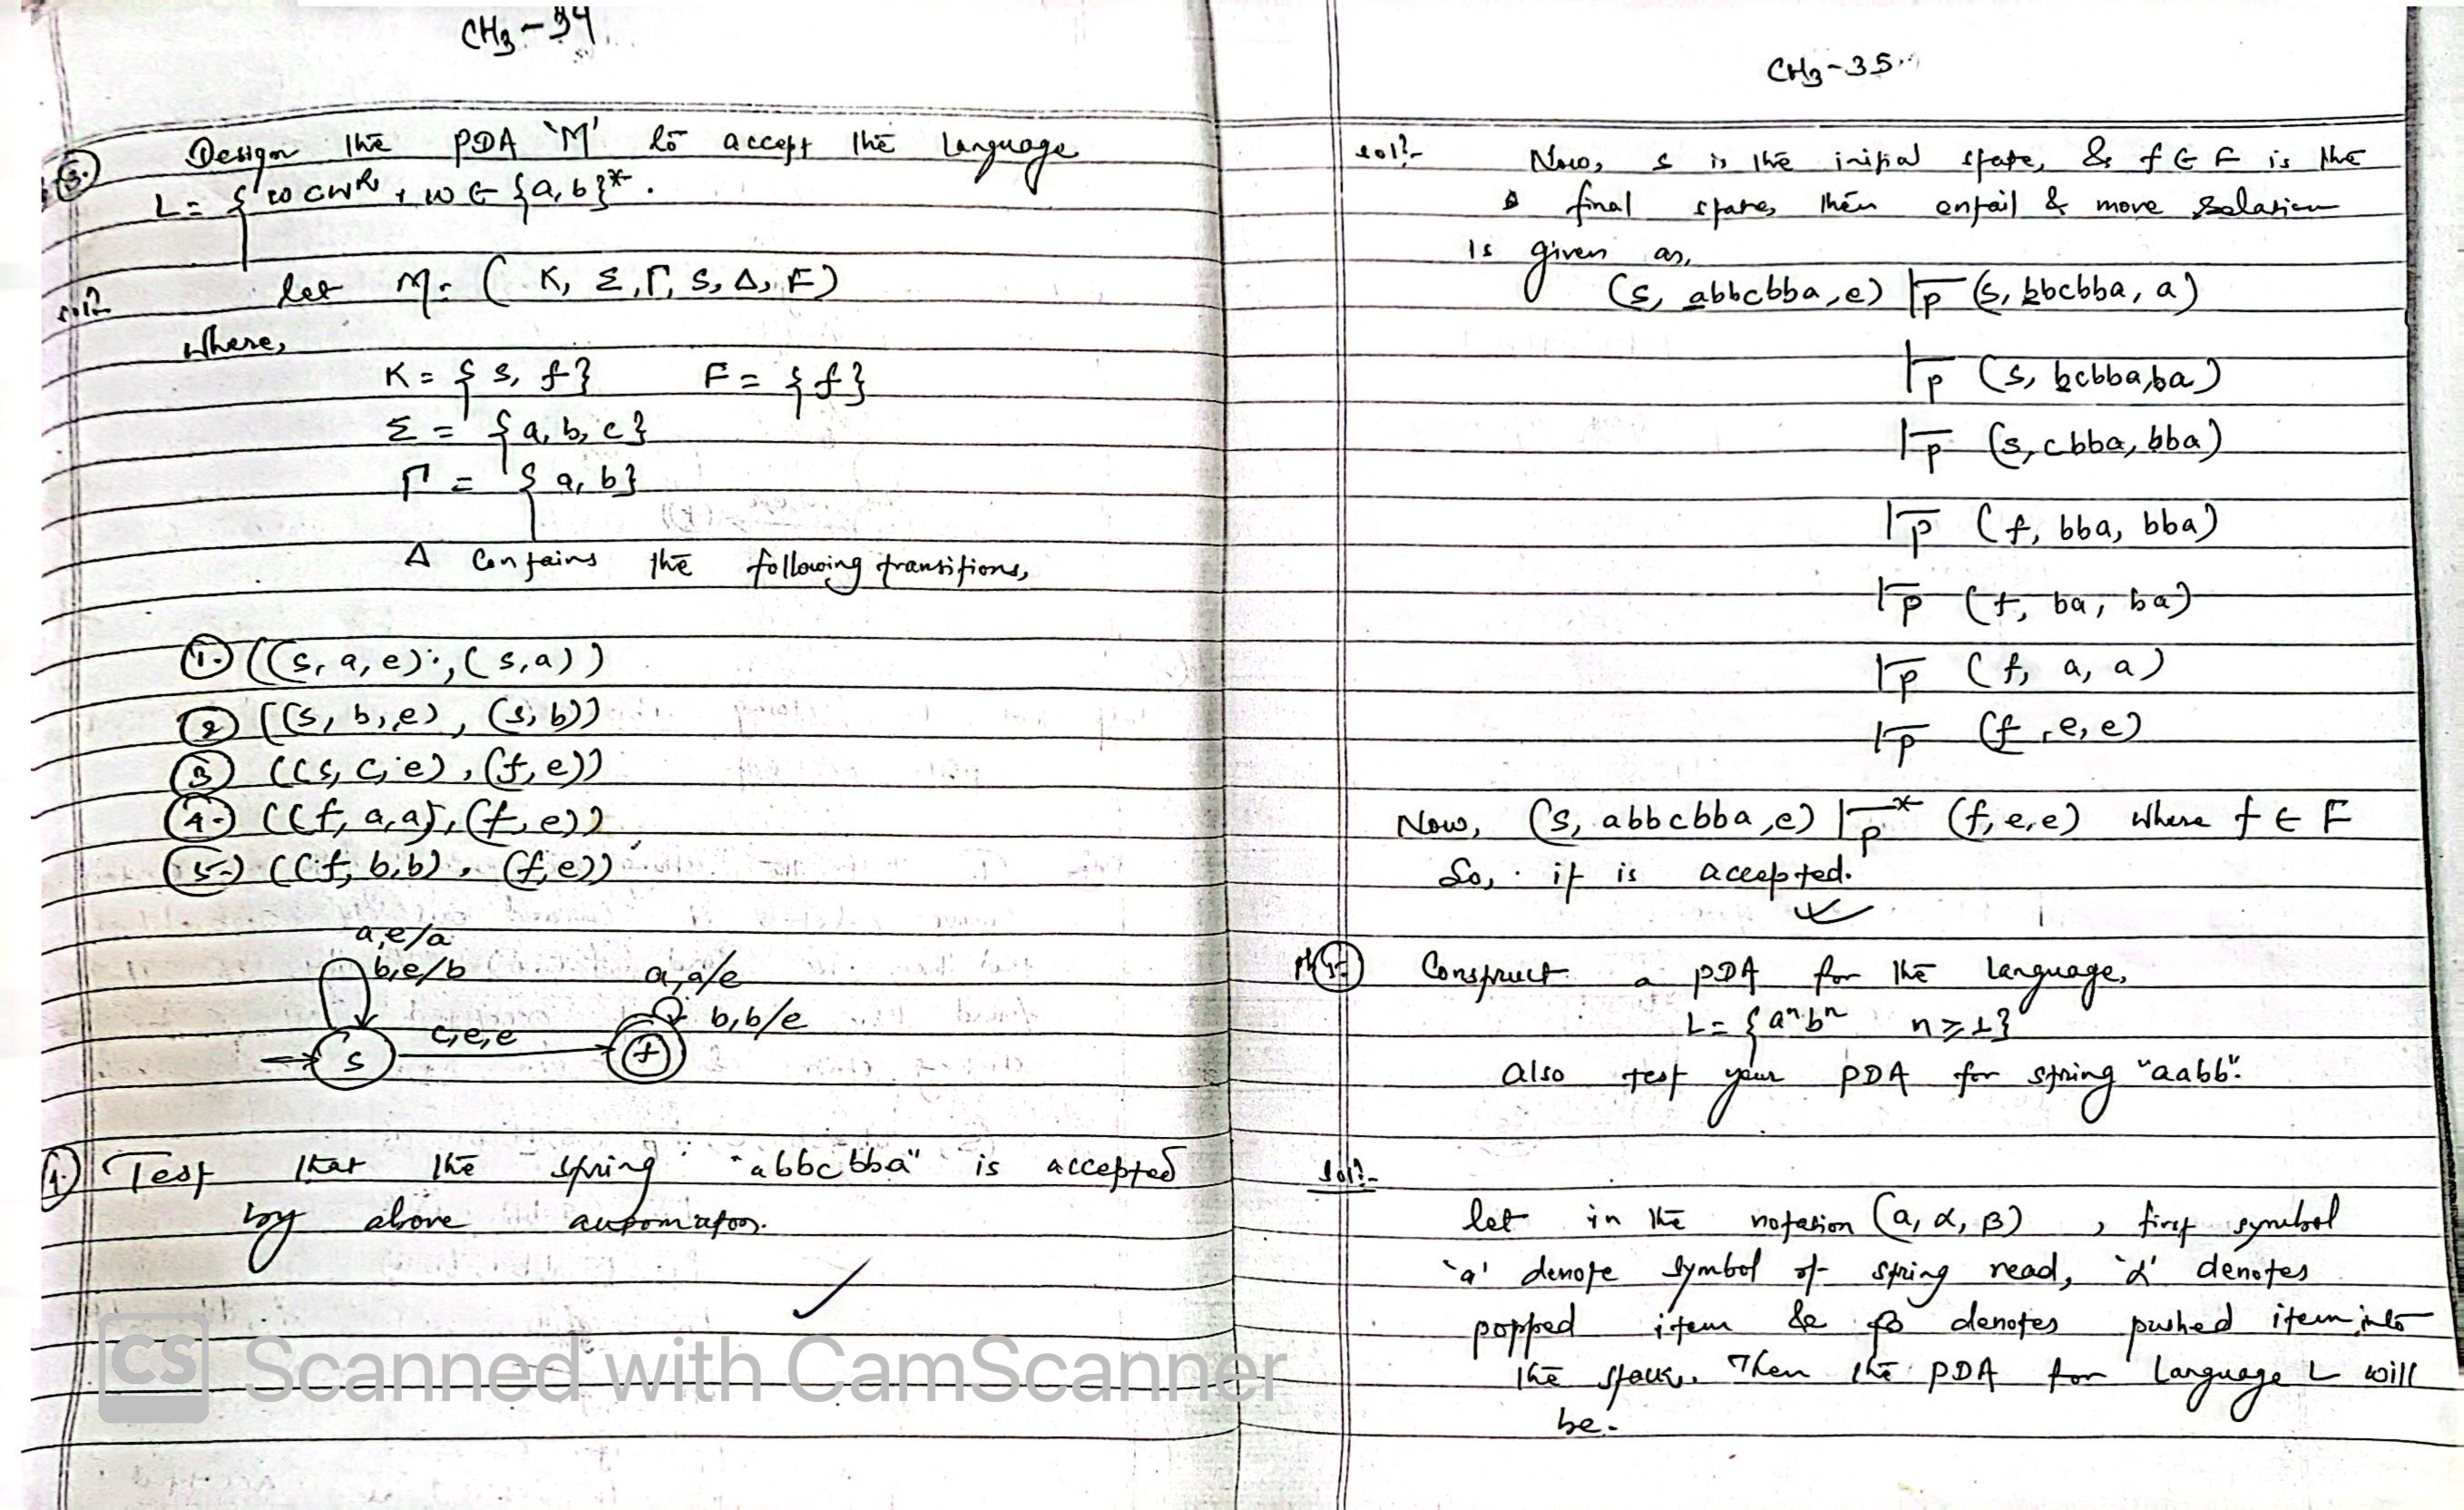 CH3-34
3. Design the PDA 'M' to accept the language
L = {wcwᴿ, w ∈ {a,b}*.
solⁿ
let M = (K, Σ, Γ, S, Δ, F)
where,
K = {s, f} F = {f}
Σ = {a, b, c}
Γ = {a, b}
Δ contains the following transitions,
1. ((s, a, e), (s, a))
2 ((s, b, e), (s, b))
3 ((s, c, e), (f, e))
4. ((f, a, a), (f, e))
5. ((f, b, b), (f, e))
a,e/a
b,e/b
a,a/e
b,b/e
c,e,e
s
f
1. Test that the string "abbcbba" is accepted
by above automaton.
CS Scanned with CamScanner
CH3-35
solⁿ:- Now, s is the initial state, & f ∈ F is the
final state, then entail & move relation
is given as,
(s, abbcbba, e) |-p (s, bbcbba, a)
|-p (s, bcbba, ba)
|-p (s, cbba, bba)
|-p (f, bba, bba)
|-p (f, ba, ba)
|-p (f, a, a)
|-p (f, e, e)
Now, (s, abbcbba, e) |-p* (f, e, e) where f ∈ F
So, it is accepted.
Construct a PDA for the language,
L = {aⁿbⁿ n ≥ 1}
Also test your PDA for string "aabb".
solⁿ:-
let in the notation (a, α, β), first symbol
'a' denote symbol of string read, 'α' denotes
popped item & β denotes pushed item into
the stack. Then the PDA for language L will
be-